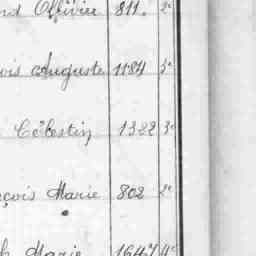 nd Ollivier 811. 2e
ois Auguste 1184 3e
Célestin 1322 3e
çois Marie 802 2e
h Marie 1647 4e